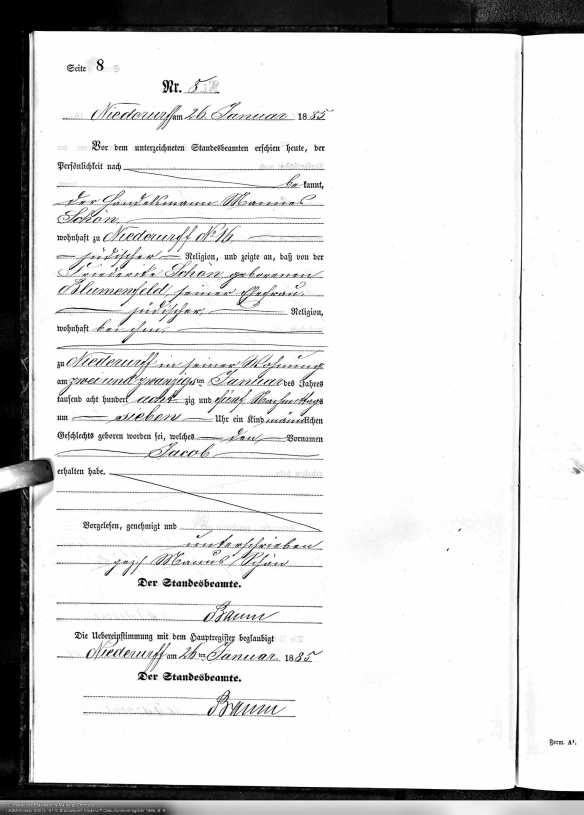 Seite 8
Nr. 5
Niederurff am 26. Januar 1885
Vor dem unterzeichneten Standesbeamten erschien heute, der
Persönlichkeit nach
bekannt,
der Handelsmann Mannus
Schön
wohnhaft zu Niederurff No 16,
jüdischer Religion, und zeigte an, daß von der
Friederike Schön geborenen
Blumenfeld, seiner Ehefrau
jüdischer Religion,
wohnhaft bei ihm
zu Niederurff in seiner Wohnung
am zwei und zwanzigsten Januar des Jahres
tausend acht hundert acht zig und fünf Nachmittags
um sieben Uhr ein Kind männlichen
Geschlechts geboren worden sei, welches den Vornamen
Jacob
erhalten habe.
Vorgelesen, genehmigt und
unterschrieben
gez. Mannus Schön
Der Standesbeamte.
Baum
Die Uebereinstimmung mit dem Hauptregister beglaubigt
Niederurff am 26ten Januar 1885.
Der Standesbeamte.
Baum
Form. A¹.